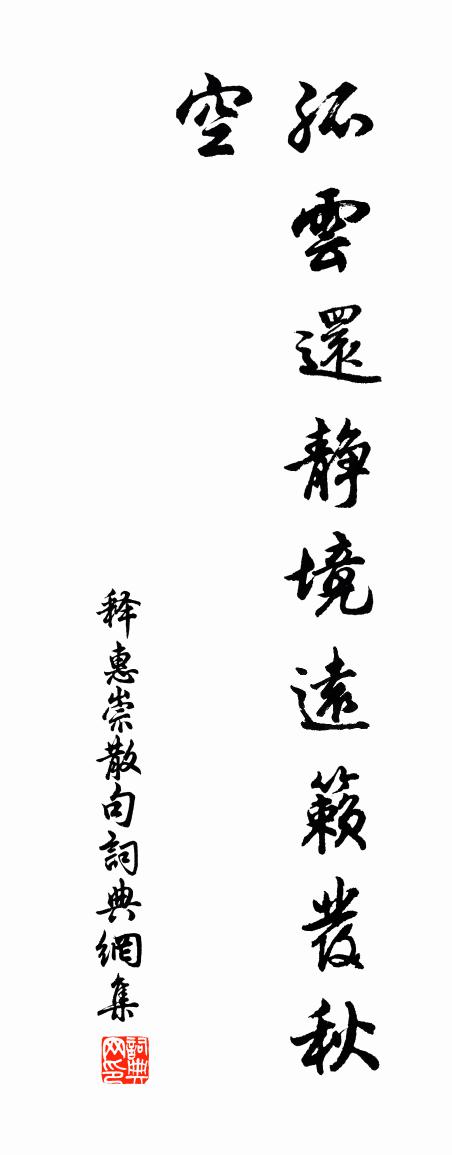 孤雲還静境遠籟發秋
空
释惠崇散句詞典網集
詞典网印